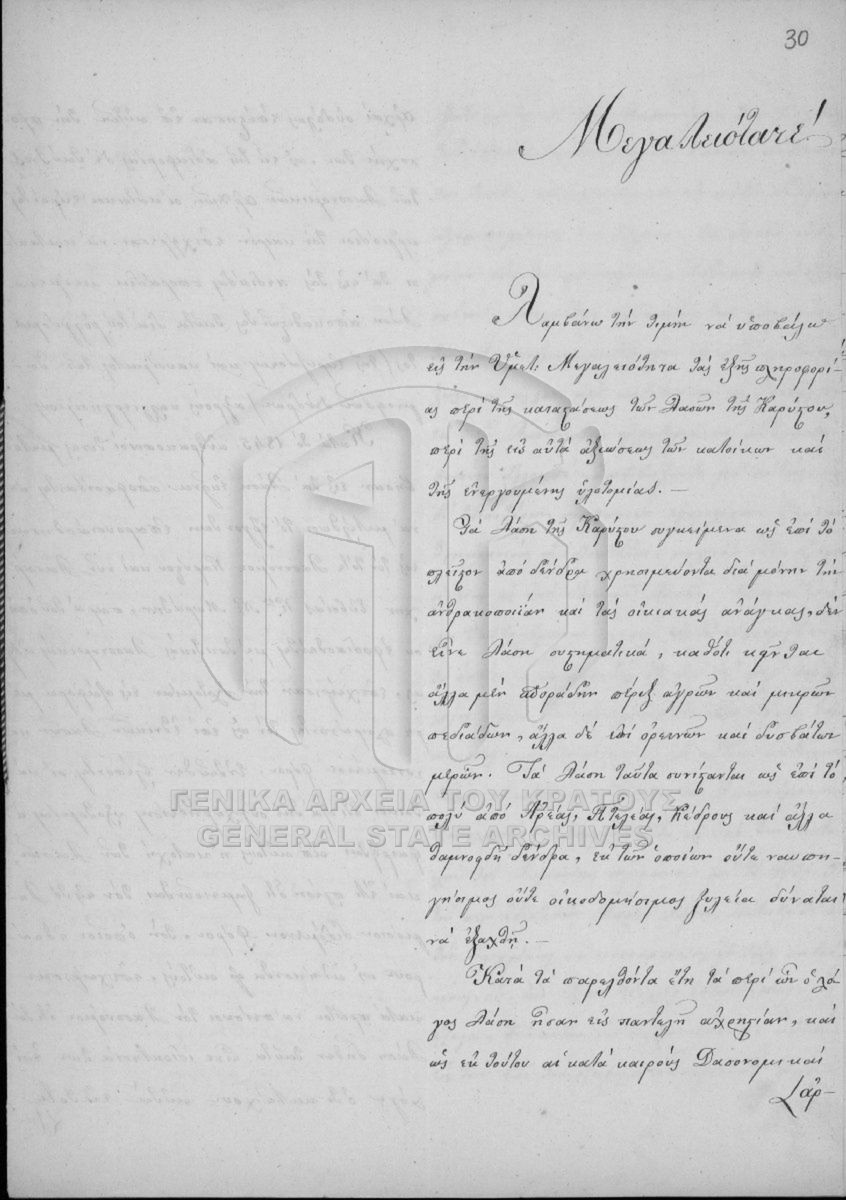 30
Μεγαλειότατε!
Λαμβάνω τὴν τιμὴν νὰ ὑποβάλω
εἰς τὴν Ὑμετ: Μεγαλειότητα τὰς ἑξῆς πληροφορί-
ας περὶ τῆς καταστάσεως τῶν δασῶν τῆς Καρύστου,
περὶ τῆς εἰς αὐτὰ ἀξιώσεως τῶν κατοίκων καὶ
τῆς ἐνεργουμένης ὑλοτομίας. —
Τὰ δάση τῆς Καρύστου συγκείμενα ὡς ἐπὶ τὸ
πλεῖστον ἀπὸ δένδρα χρησιμεύοντα διὰ μόνην τὴν
ἀνθρακοποιΐαν καὶ τὰς οἰκιακὰς ἀνάγκας, δὲν
εἶνε δάση συστηματικά, καθότι κεῖνται
ἄλλα μὲν σποράδην πέριξ ἀγρῶν καὶ μικρῶν
πεδιάδων, ἄλλα δὲ ἐπὶ ὀρεινῶν καὶ δυσβάτων
μερῶν. Τὰ δάση ταῦτα συνίστανται ὡς ἐπὶ τὸ
πολὺ ἀπὸ Ἀρέας, Πτελέας, Κέδρους καὶ ἄλλα
θαμνοειδῆ δένδρα, ἐκ τῶν ὁποίων οὔτε ναυπη-
γήσιμος οὔτε οἰκοδομήσιμος ξυλεία δύναται
νὰ ἐξαχθῇ. —
Κατὰ τὰ παρελθόντα ἔτη τὰ περὶ ὧν ὁ λό-
γος δάση ἦσαν εἰς παντελῆ ἀχρηστίαν, καὶ
ὡς ἐκ τούτου αἱ κατὰ καιροὺς Δασονομικαὶ
ἀρ-
ΓΕΝΙΚΑ ΑΡΧΕΙΑ ΤΟΥ ΚΡΑΤΟΥΣ
GENERAL STATE ARCHIVES